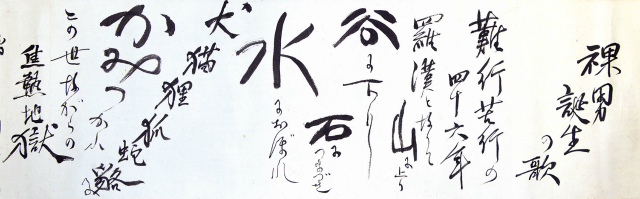 裸男
誕生
の歌
難行苦行の
四十六年
羅漢となりて
山に上り
谷に下りし
石に
つまづき
水
におぼれ
犬
猫
狸
狐
かみつかれ
蛇
この世ながらの
焦熱地獄